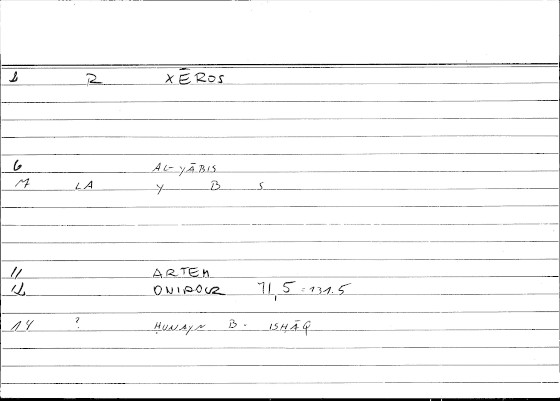 1 R XĒROS
6 AL-YĀBIS
M LA Y B S
11 ARTEM
12 ONIROCR 71,5 = 131.5
14 ? ḤUNAYN B. ISḤĀQ